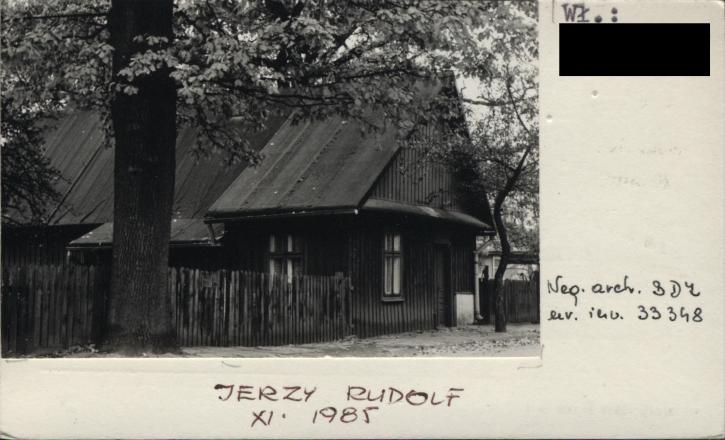 WŁ.:
Neg. arch. BDZ
nr. inv. 33348
JERZY RUDOLF
XI. 1985